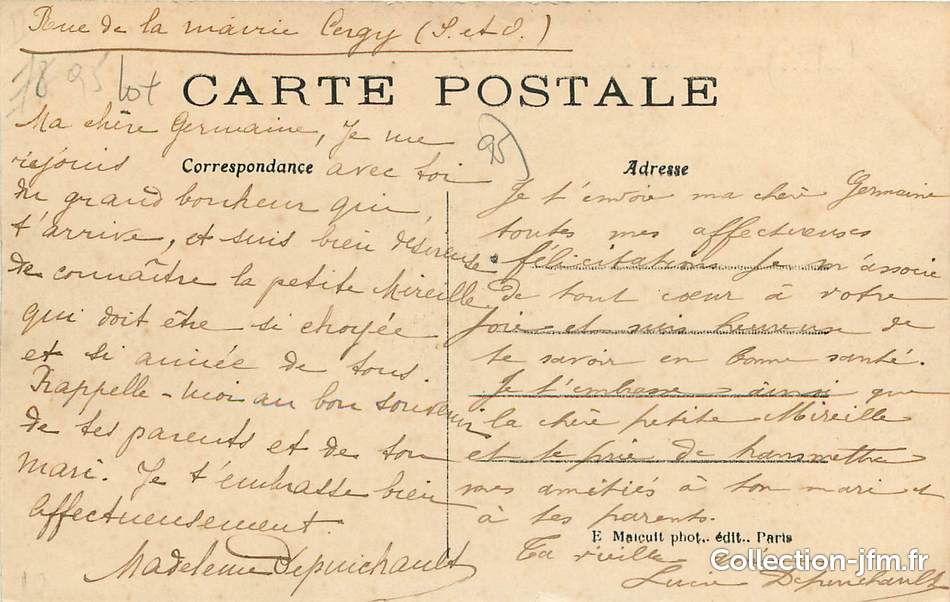 Rue de la mairie Cergy (S. et O.)
18 95 lot
CARTE POSTALE
95
Correspondance
Adresse
Ma chère Germaine, Je me
réjouis avec toi
du grand bonheur qui
t'arrive, et suis bien désireuse
de connaître la petite Mireille
qui doit être si choyée
et si aimée de tous.
Rappelle-moi au bon souvenir
de tes parents et de ton
mari. Je t'embrasse bien
affectueusement.
Madeleine Depuichault
Je t'envoie ma chère Germaine
toutes mes affectueuses
félicitations. Je m'associe
de tout cœur à votre
joie et suis heureuse de
te savoir en bonne santé.
Je t'embrasse ainsi que
la chère petite Mireille
et te prie de transmettre
mes amitiés à ton mari et
à tes parents.
E Maicuit phot.. édit.. Paris
Ta vieille
Lucie Depuichault
Collection-jfm.fr